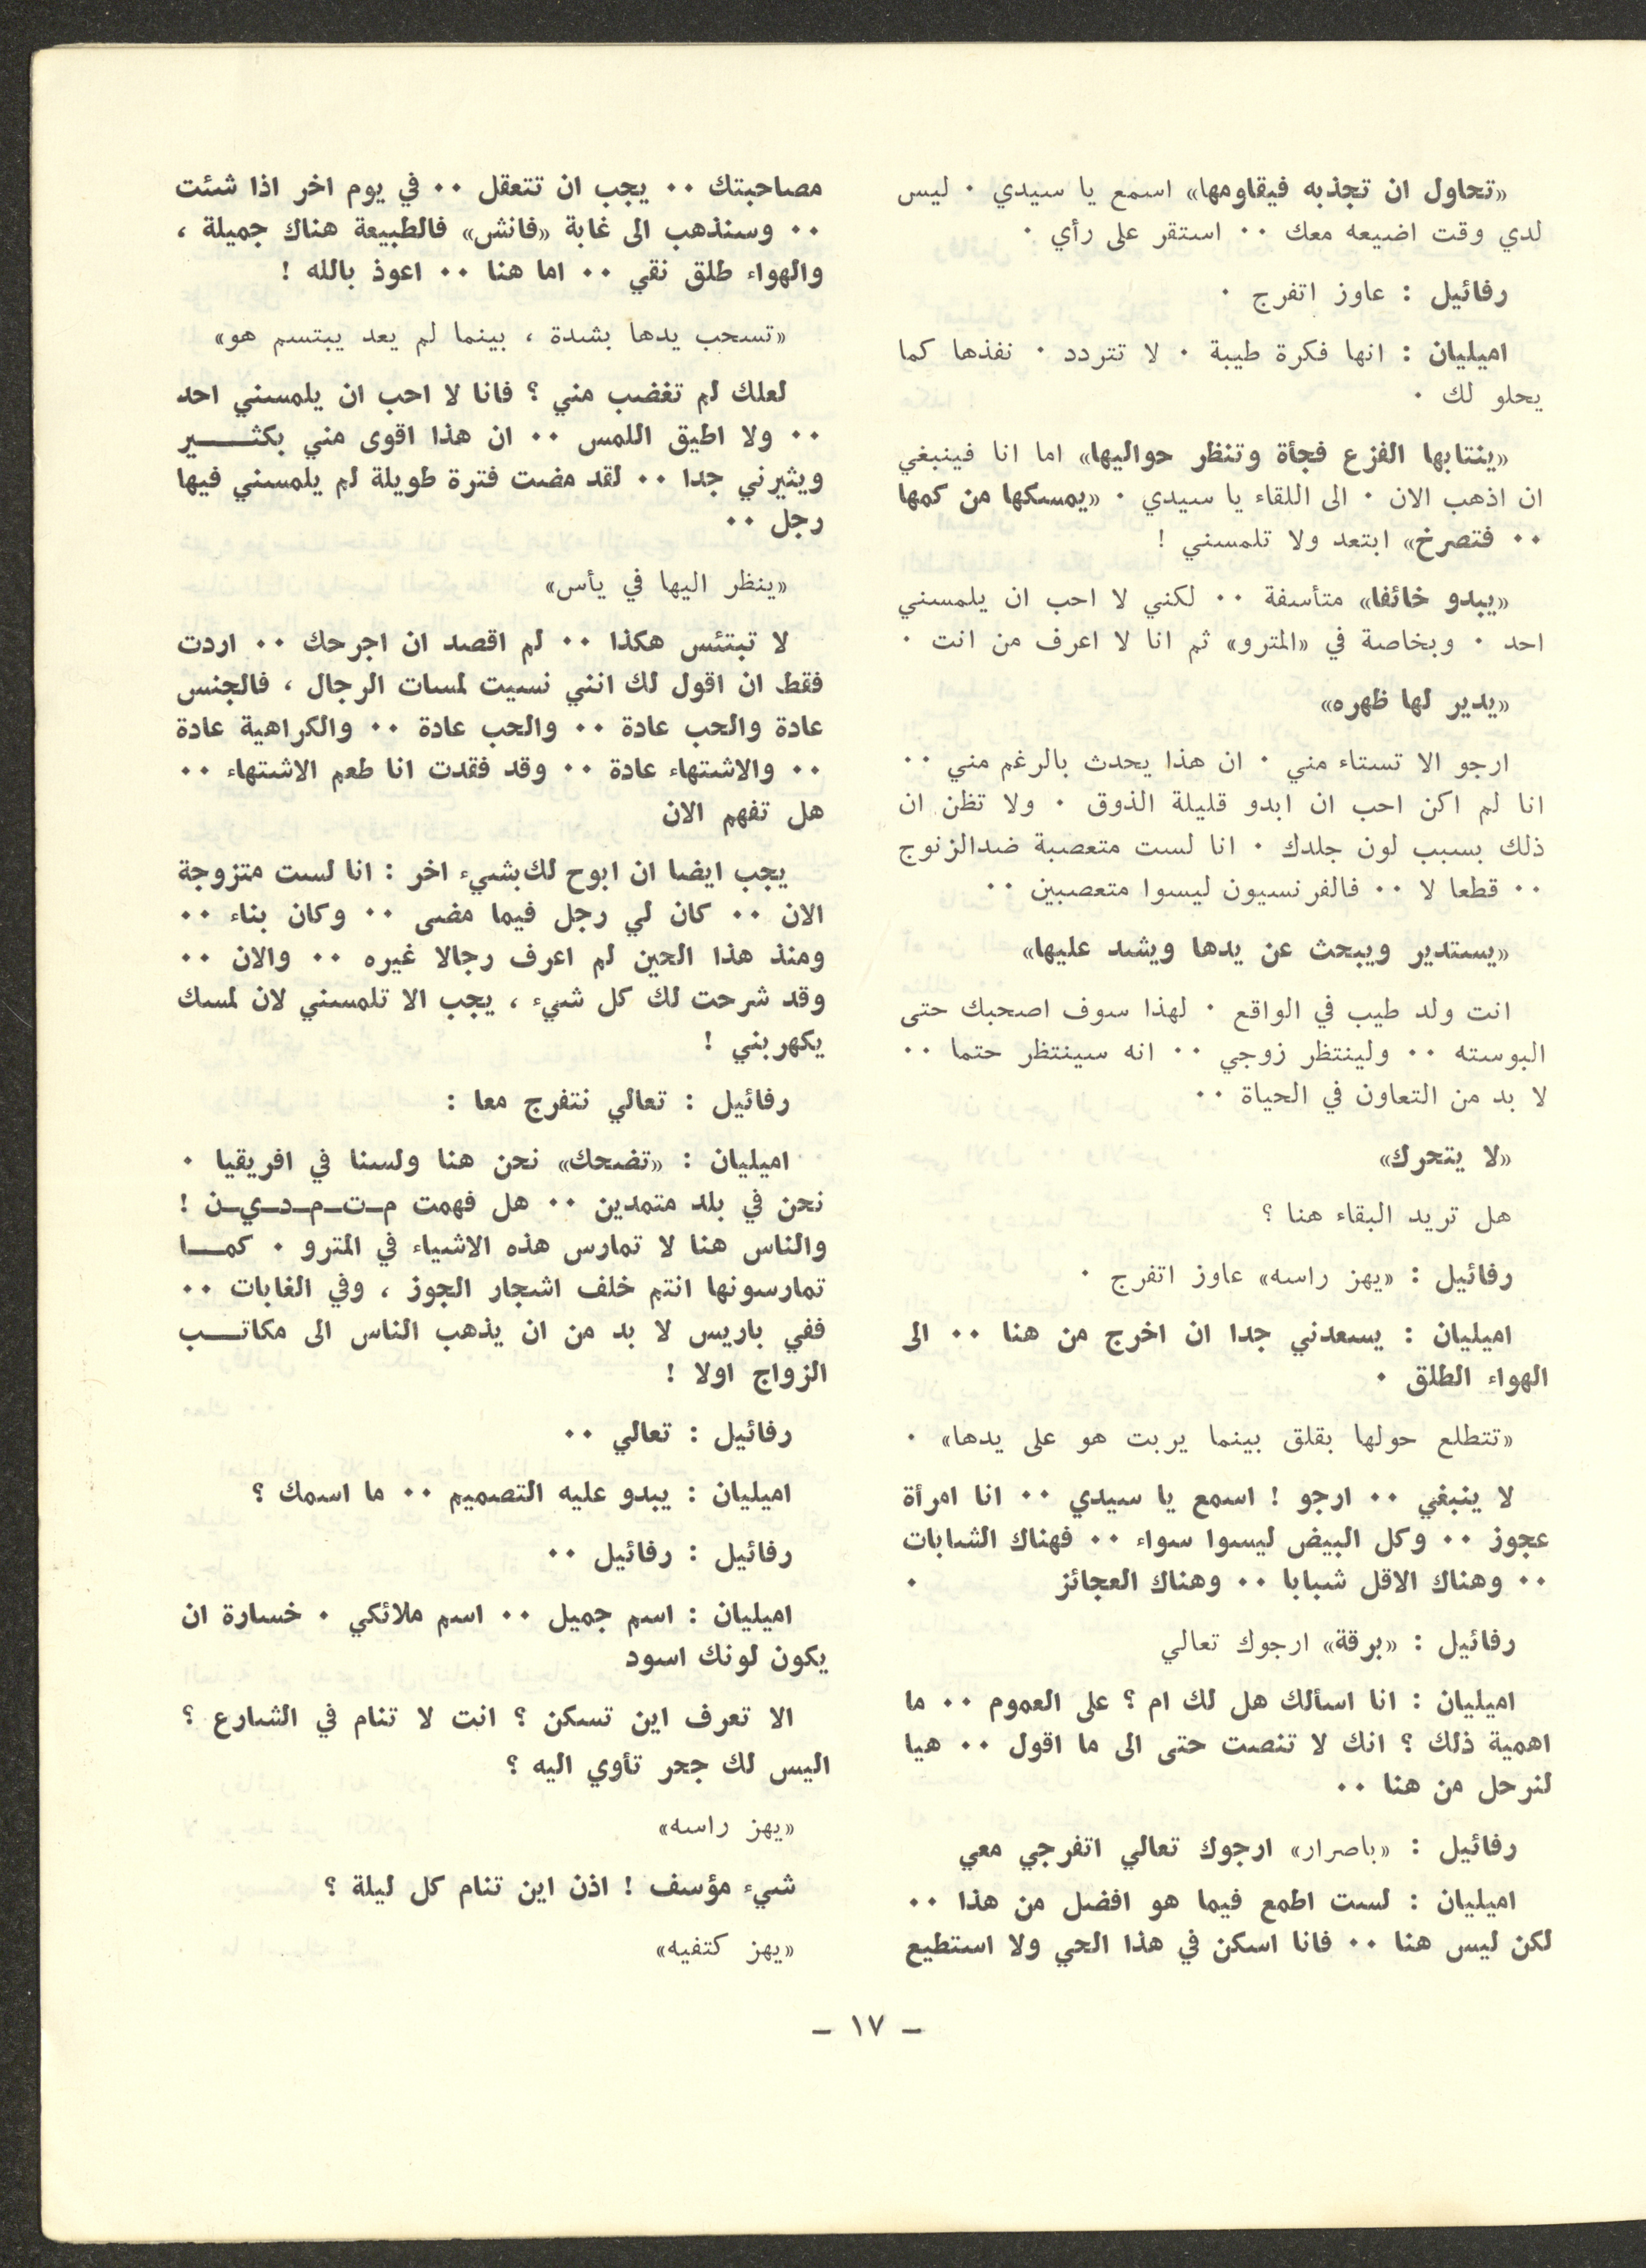 «تحاول ان تجذبه فيقاومها» اسمع يا سيدي ٠ ليس
لدي وقت اضيعه معك ٠٠ استقر على رأي ٠
رفائيل : عاوز اتفرج ٠
اميليان : انها فكرة طيبة ٠ لا تتردد ٠ نفذها كما
يحلو لك ٠
«ينتابها الفزع فجأة وتنظر حواليها» اما انا فينبغي
ان اذهب الان ٠ الى اللقاء يا سيدي ٠ «يمسكها من كمها
٠٠ فتصرخ» ابتعد ولا تلمسني !
«يبدو خائفا» متأسفة ٠٠ لكني لا احب ان يلمسني
احد ٠ وبخاصة في «المترو» ثم انا لا اعرف من انت ٠
«يدير لها ظهره»
ارجو الا تستاء مني ٠ ان هذا يحدث بالرغم مني ٠٠
انا لم اكن احب ان ابدو قليلة الذوق ٠ ولا تظن ان
ذلك بسبب لون جلدك ٠ انا لست متعصبة ضدالزنوج
٠٠ قطعا لا ٠٠ فالفرنسيون ليسوا متعصبين ٠٠
«يستدير ويبحث عن يدها ويشد عليها»
انت ولد طيب في الواقع ٠ لهذا سوف اصحبك حتى
البوسته ٠٠ ولينتظر زوجي ٠٠ انه سينتظر حتما ٠٠
لا بد من التعاون في الحياة ٠٠
«لا يتحرك»
هل تريد البقاء هنا ؟
رفائيل : «يهز راسه» عاوز اتفرج ٠
اميليان : يسعدني جدا ان اخرج من هنا ٠٠ الى
الهواء الطلق ٠
«تتطلع حولها بقلق بينما يربت هو على يدها» ٠
لا ينبغي ٠٠ ارجو ! اسمع يا سيدي ٠٠ انا امرأة
عجوز ٠٠ وكل البيض ليسوا سواء ٠٠ فهناك الشابات
٠٠ وهناك الاقل شبابا ٠٠ وهناك العجائز ٠
رفائيل : «برقة» ارجوك تعالي
اميليان : انا اسألك هل لك ام ؟ على العموم ٠٠ ما
اهمية ذلك ؟ انك لا تنصت حتى الى ما اقول ٠٠ هيا
لنرحل من هنا ٠٠
رفائيل : «باصرار» ارجوك تعالي اتفرجي معي
اميليان : لست اطمع فيما هو افضل من هذا ٠٠
لكن ليس هنا ٠٠ فانا اسكن في هذا الحي ولا استطيع
مصاحبتك ٠٠ يجب ان تتعقل ٠٠ في يوم اخر اذا شئت
٠٠ وسنذهب الى غابة «فانش» فالطبيعة هناك جميلة ،
والهواء طلق نقي ٠٠ اما هنا ٠٠ اعوذ بالله !
«تسحب يدها بشدة ، بينما لم يعد يبتسم هو»
لعلك لم تغضب مني ؟ فانا لا احب ان يلمسني احد
٠٠ ولا اطيق اللمس ٠٠ ان هذا اقوى مني بكثـــــير
ويثيرني جدا ٠٠ لقد مضت فترة طويلة لم يلمسني فيها
رجل ٠٠
«ينظر اليها في يأس»
لا تبتئس هكذا ٠٠ لم اقصد ان اجرحك ٠٠ اردت
فقط ان اقول لك انني نسيت لمسات الرجال ، فالجنس
عادة والحب عادة ٠٠ والحب عادة ٠٠ والكراهية عادة
٠٠ والاشتهاء عادة ٠٠ وقد فقدت انا طعم الاشتهاء ٠٠
هل تفهم الان
يجب ايضا ان ابوح لك بشيء اخر : انا لست متزوجة
الان ٠٠ كان لي رجل فيما مضى ٠٠ وكان بناء ٠٠
ومنذ هذا الحين لم اعرف رجالا غيره ٠٠ والان ٠٠
وقد شرحت لك كل شيء ، يجب الا تلمسني لان لمسك
يكهربني !
رفائيل : تعالي نتفرج معا :
اميليان : «تضحك» نحن هنا ولسنا في افريقيا ٠
نحن في بلد متمدين ٠٠ هل فهمت مـ‍تـ‍مـ‍د‍ـيـ‍ن !
والناس هنا لا تمارس هذه الاشياء في المترو ٠ كمـــا
تمارسونها انتم خلف اشجار الجوز ، وفي الغابات ٠٠
ففي باريس لا بد من ان يذهب الناس الى مكاتـــب
الزواج اولا !
رفائيل : تعالي ٠٠
اميليان : يبدو عليه التصميم ٠٠ ما اسمك ؟
رفائيل : رفائيل ٠٠
اميليان : اسم جميل ٠٠ اسم ملائكي ٠ خسارة ان
يكون لونك اسود
الا تعرف اين تسكن ؟ انت لا تنام في الشارع ؟
اليس لك جحر تأوي اليه ؟
«يهز راسه»
شيء مؤسف ! اذن اين تنام كل ليلة ؟
«يهز كتفيه»
– ١٧ –